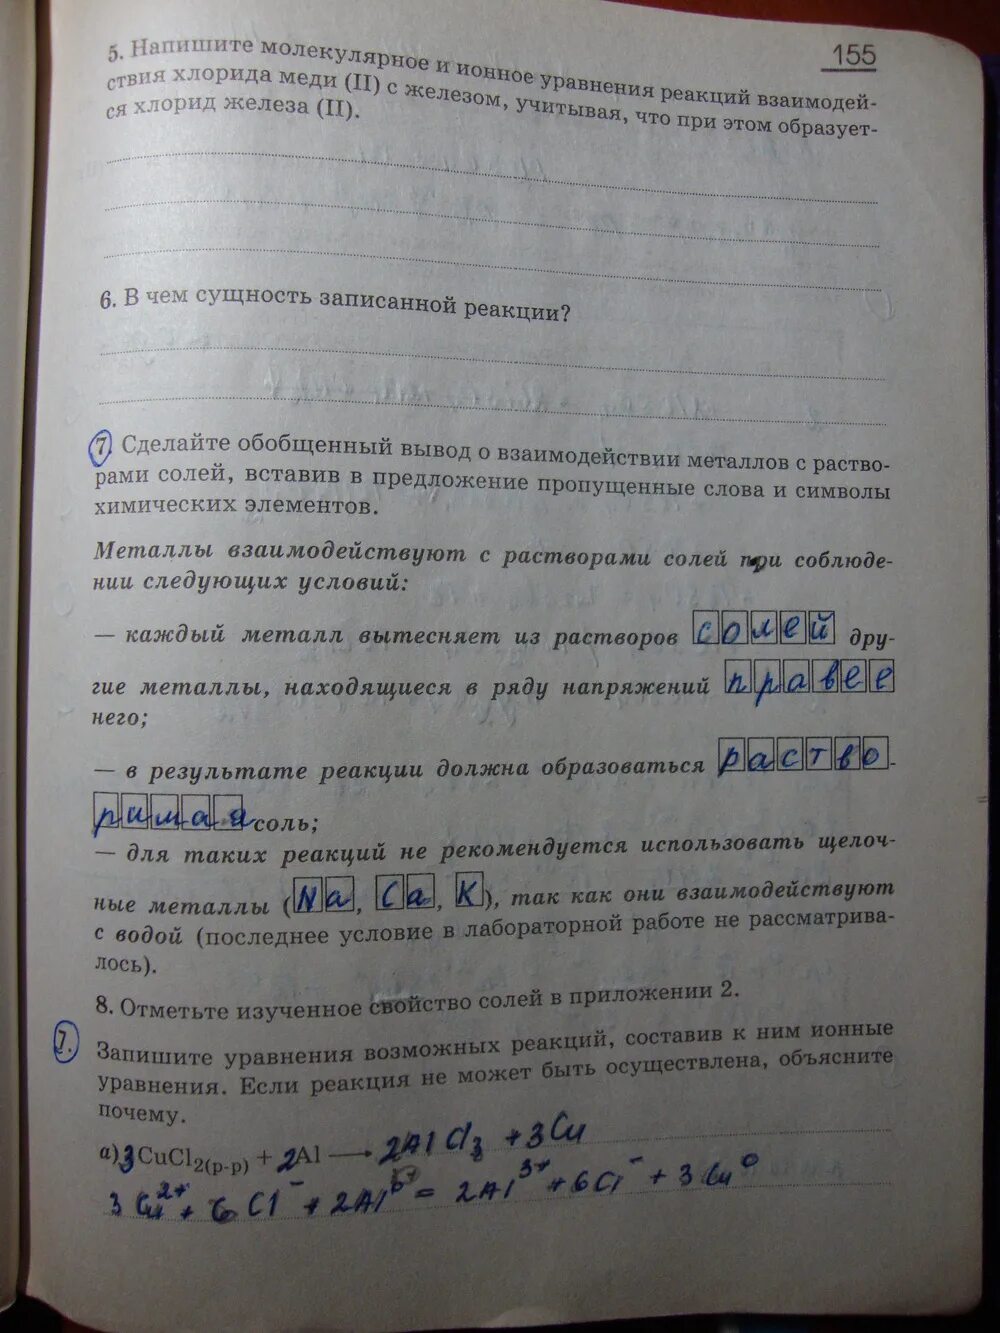 155
5. Напишите молекулярное и ионное уравнения реакций взаимодей-
ствия хлорида меди (II) с железом, учитывая, что при этом образует-
ся хлорид железа (II).
6. В чем сущность записанной реакции?
7. Сделайте обобщенный вывод о взаимодействии металлов с раство-
рами солей, вставив в предложение пропущенные слова и символы
химических элементов.
Металлы взаимодействуют с растворами солей при соблюде-
нии следующих условий:
— каждый металл вытесняет из растворов солей дру-
гие металлы, находящиеся в ряду напряжений правее
него;
— в результате реакции должна образоваться раство-
римая соль;
— для таких реакций не рекомендуется использовать щелоч-
ные металлы (Na, Ca, K), так как они взаимодействуют
с водой (последнее условие в лабораторной работе не рассматрива-
лось).
8. Отметьте изученное свойство солей в приложении 2.
7.
Запишите уравнения возможных реакций, составив к ним ионные
уравнения. Если реакция не может быть осуществлена, объясните
почему.
а) 3CuCl2(р-р) + 2Al → 2AlCl3 + 3Cu
3Cu²⁺ + 6Cl⁻ + 2Al⁰ = 2Al³⁺ + 6Cl⁻ + 3Cu⁰